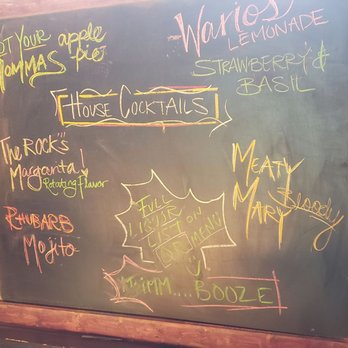 NOT YOUR apple
MOMMAS pie
Warios
LEMONADE
STRAWBERRY &
BASIL
HOUSE COCKTAILS
THE ROCK'S
Margarita!
Rotating Flavor
RHUBARB
Mojito
MEATY
MARY Bloody
FULL
LIQUOR
LIST ON
OUR MENU
Mmmm.... BOOZE